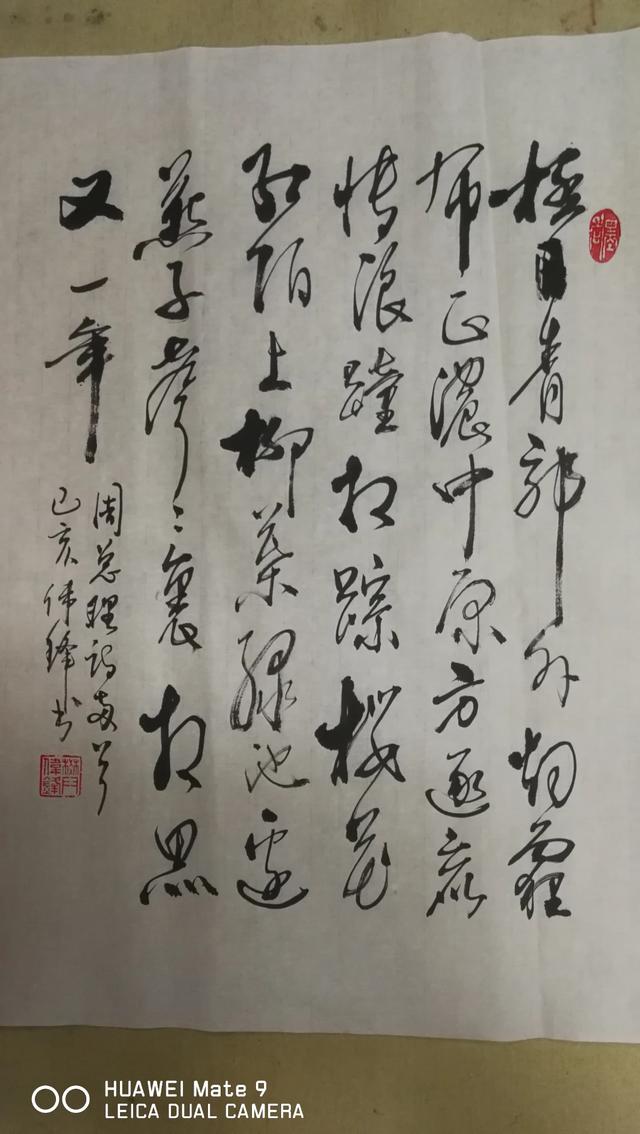 极目青郊外烟霾
布正浓中原方逐鹿
博浪踵相踪樱花
红陌上柳葉绿池边
燕子声々裏相思
又一年
周总理诗两首
己亥伟锋书
HUAWEI Mate 9
LEICA DUAL CAMERA